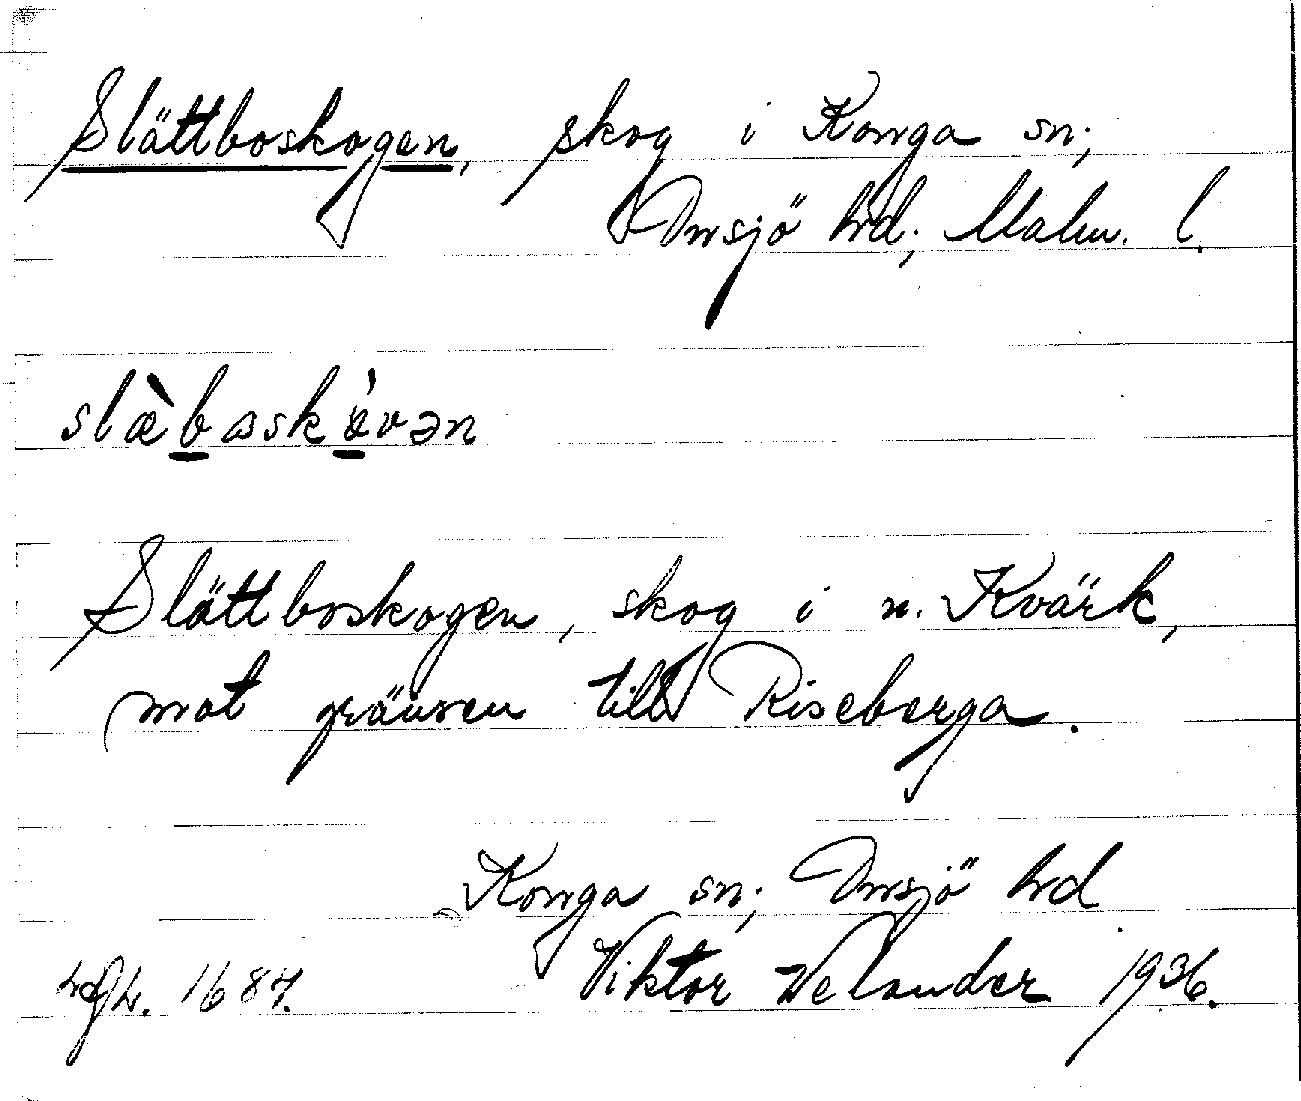 Slättboskogen, skog i Konga sn;
Onsjö hd; Malm. l.
slæ̀baskåvən
Slättboskogen, skog i n. Kvärk,
mot gränsen till Riseberga.
Konga sn; Onsjö hd
1684. Viktor Welander 1936.